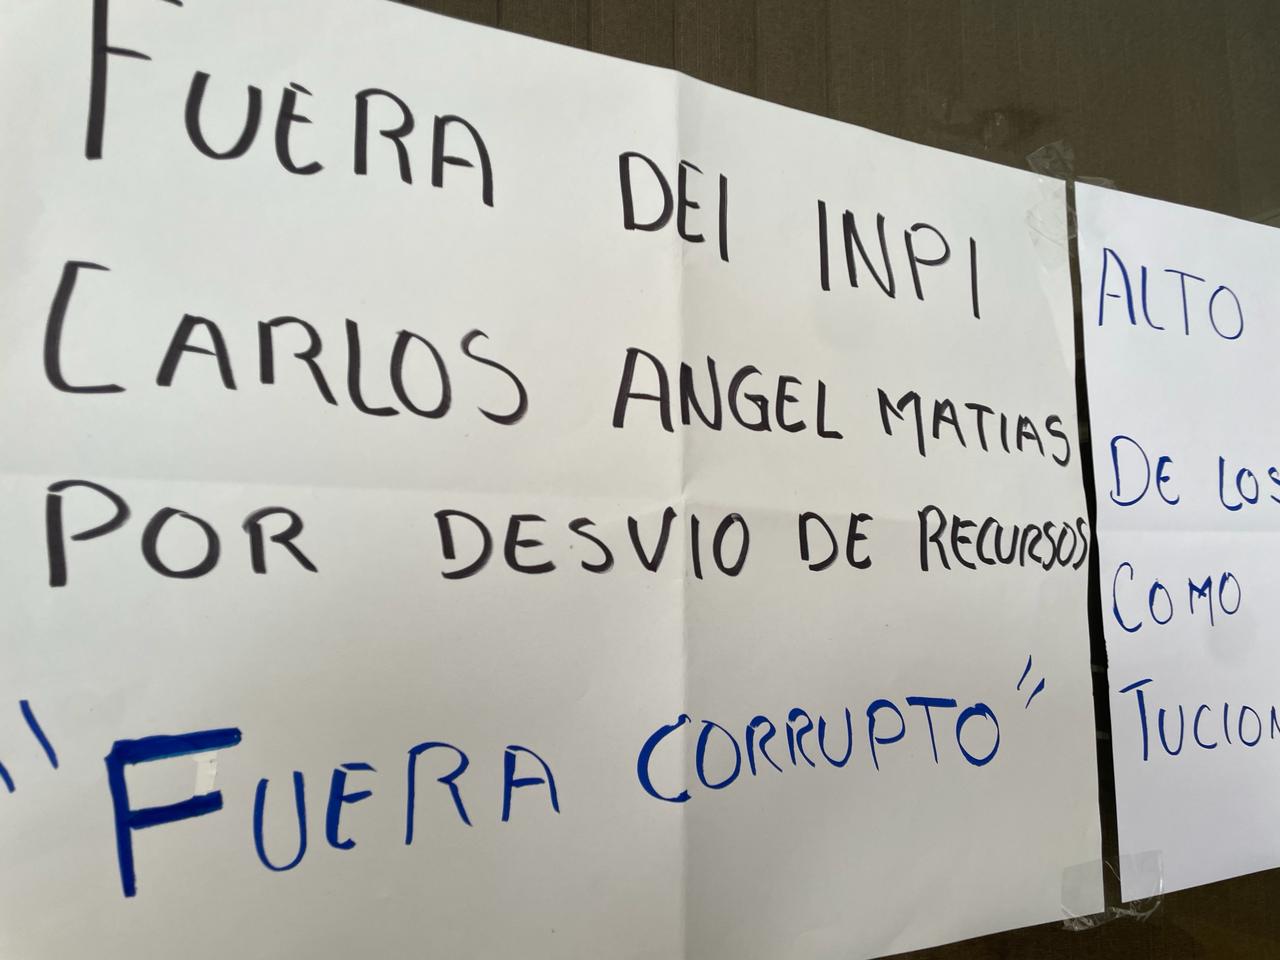 FUERA DEl INPI
CARLOS ANGEL MATIAS
POR DESVIO DE RECURSOS
"FUERA CORRUPTO"
ALTO
DE LOS
COMO
TUCION